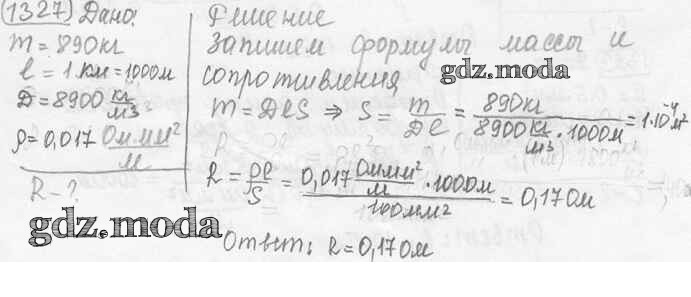 (1327) Дано:
m = 890кг
l = 1 км = 1000м
D = 8900 кг/м3
ρ = 0,017 Ом.мм²/м
R - ?
gdz.moda
Решение
Запишем формулы массы и
сопротивления
gdz.moda
m = DlS ⇒ S = m/Dl = 890кг/(8900 кг/м3 · 1000м) = 1·10⁻⁴м²
R = ρl/S = (0,017 Оммм²/м · 1000м)/100мм² = 0,17Ом
Ответ: R = 0,17Ом